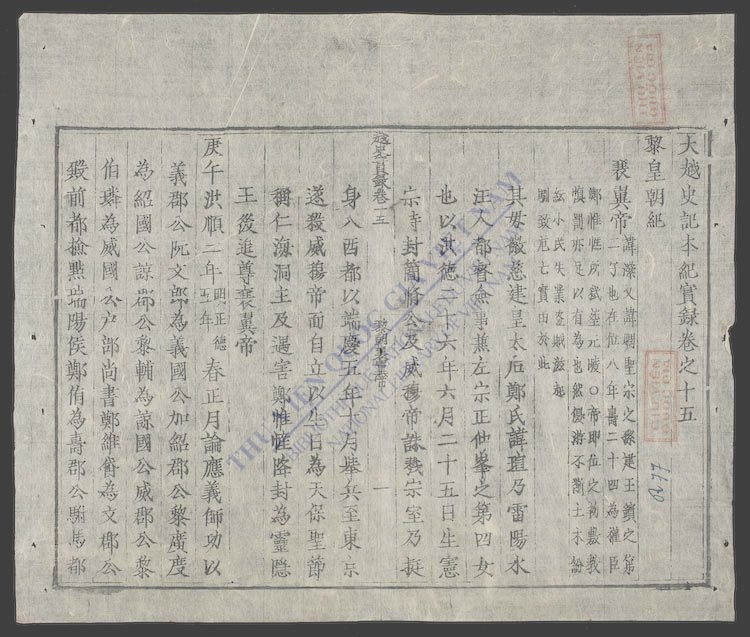 大越史記本紀實錄卷之十五
黎皇朝紀
襄翼帝
諱瀠又諱𣾷聖宗之孫建王鑌之第
二子也在位八年壽二十四為權臣
鄭惟㦃所弒
帝即位之初敷教
慎罰亦足以有為也然優游不
土木
小民失業盜賊並起
馴致危亡實由於此
其母徽慈建皇太后鄭氏諱瑄乃雷陽水
汪人都督僉事兼左宗正仲峯之第四女
也以洪德二十六年六月二十五日生憲
宗時封簡修公及威穆帝誅戮宗室乃挺
越史實錄卷十五
黎朝襄翼帝
一
身入西都以端慶五年
月舉兵至東京
遂殺威穆帝而自立以生日為天保聖節
稱仁海洞主及遇害鄭惟㦃降封為靈隱
王後追尊襄翼帝
庚午洪順二年
明正德
五年
春正月論應義師功以
義郡公阮文郎為義國公加紹郡公黎廣度
為紹國公諒郡公黎輔為諒國公威郡公黎
伯璘為威國公戶部尚書鄭維
為文郡公
殿前都撿點瑞陽侯鄭侑為壽郡公駙馬都
THƯ VIỆN QUỐC GIA VIỆT NAM
NATIONAL LIBRARY OF VIETNAM
THƯ VIỆN
QUỐC GIA